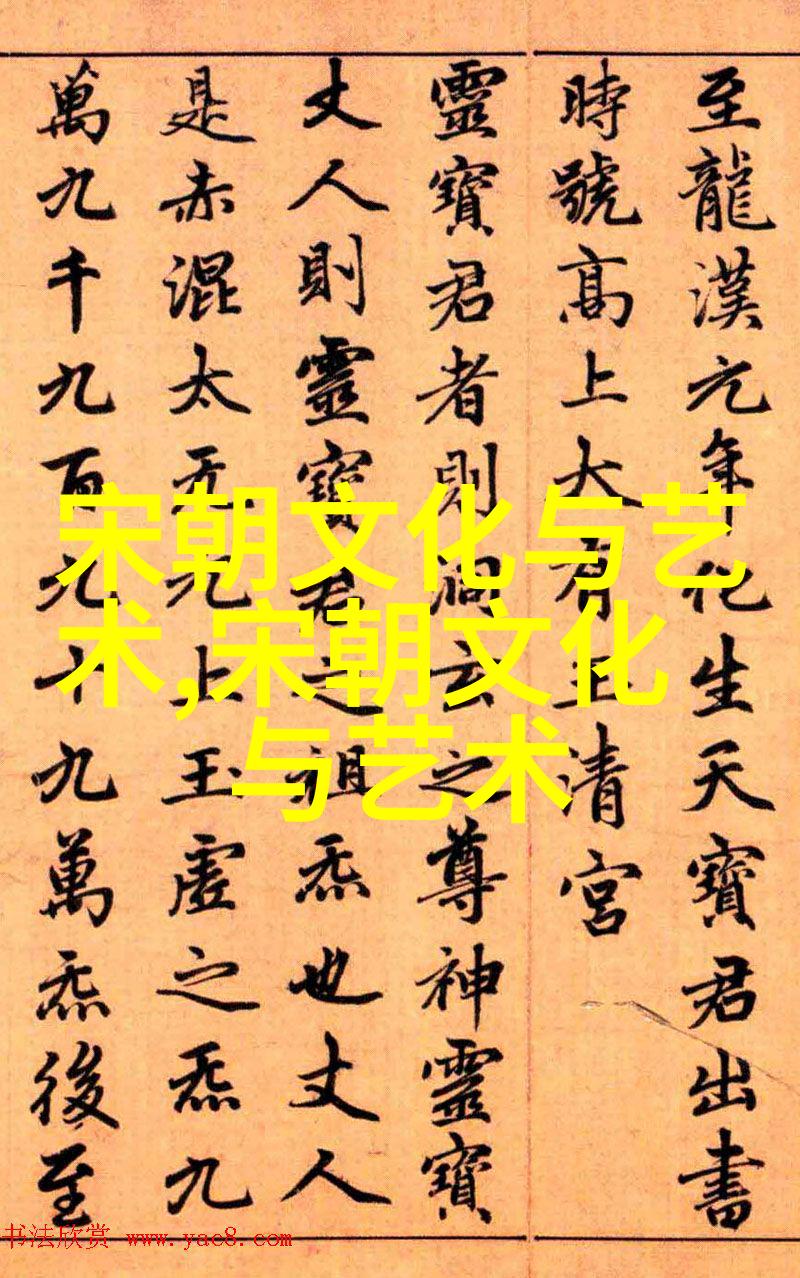 至龍漢元年化生天寶君出書
時號高上大有玉清宮
靈寶君者則洞玄之尊神靈寶
丈人則靈寶君之祖炁也丈人
是赤混太无元上玉虛之炁九
萬九千九百九十九萬炁後至
宋朝文化与艺
术,宋朝文化
与艺术
书法欣赏 www.yac8.com